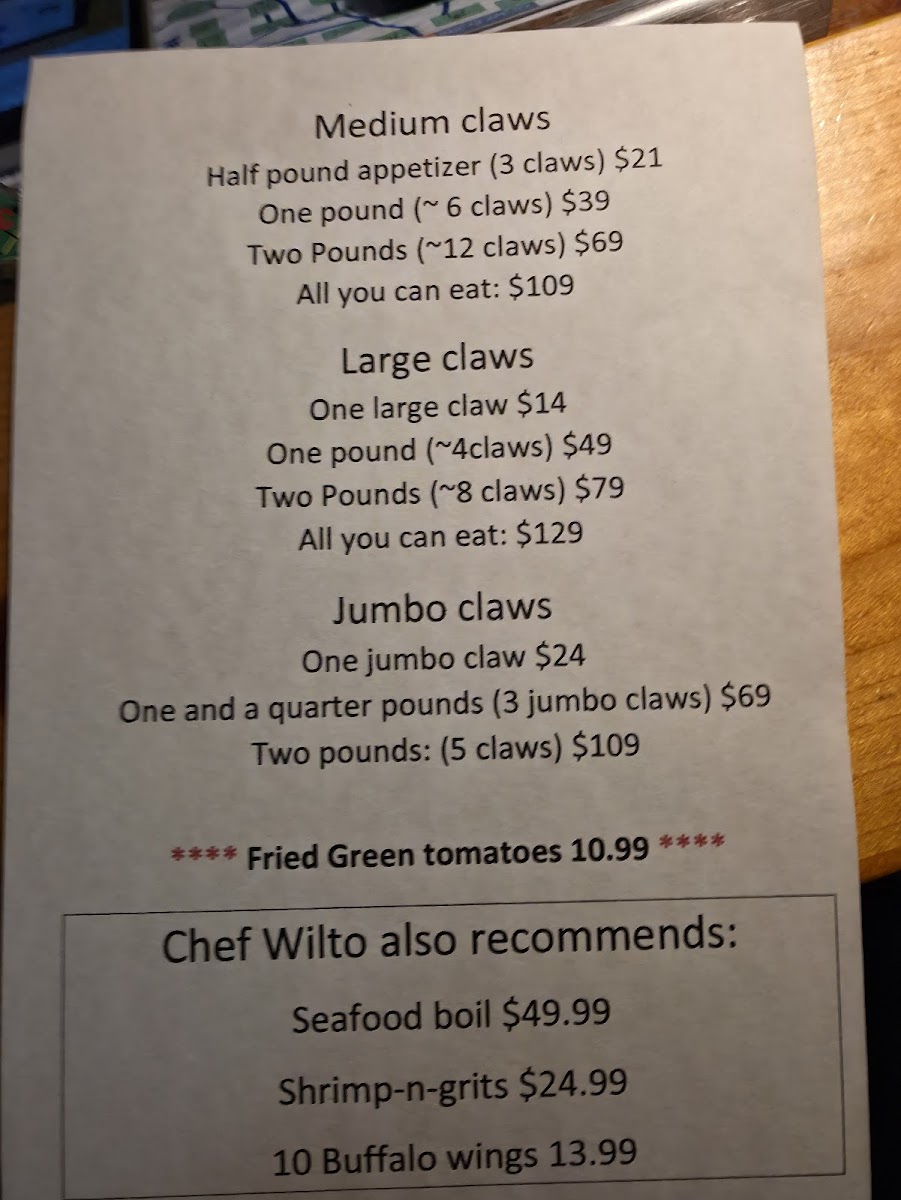 Medium claws
Half pound appetizer (3 claws) $21
One pound (~ 6 claws) $39
Two Pounds (~12 claws) $69
All you can eat: $109
Large claws
One large claw $14
One pound (~4claws) $49
Two Pounds (~8 claws) $79
All you can eat: $129
Jumbo claws
One jumbo claw $24
One and a quarter pounds (3 jumbo claws) $69
Two pounds: (5 claws) $109
**** Fried Green tomatoes 10.99 ****
Chef Wilto also recommends:
Seafood boil $49.99
Shrimp-n-grits $24.99
10 Buffalo wings 13.99